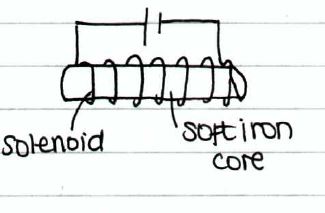 solenoid
soft iron
core